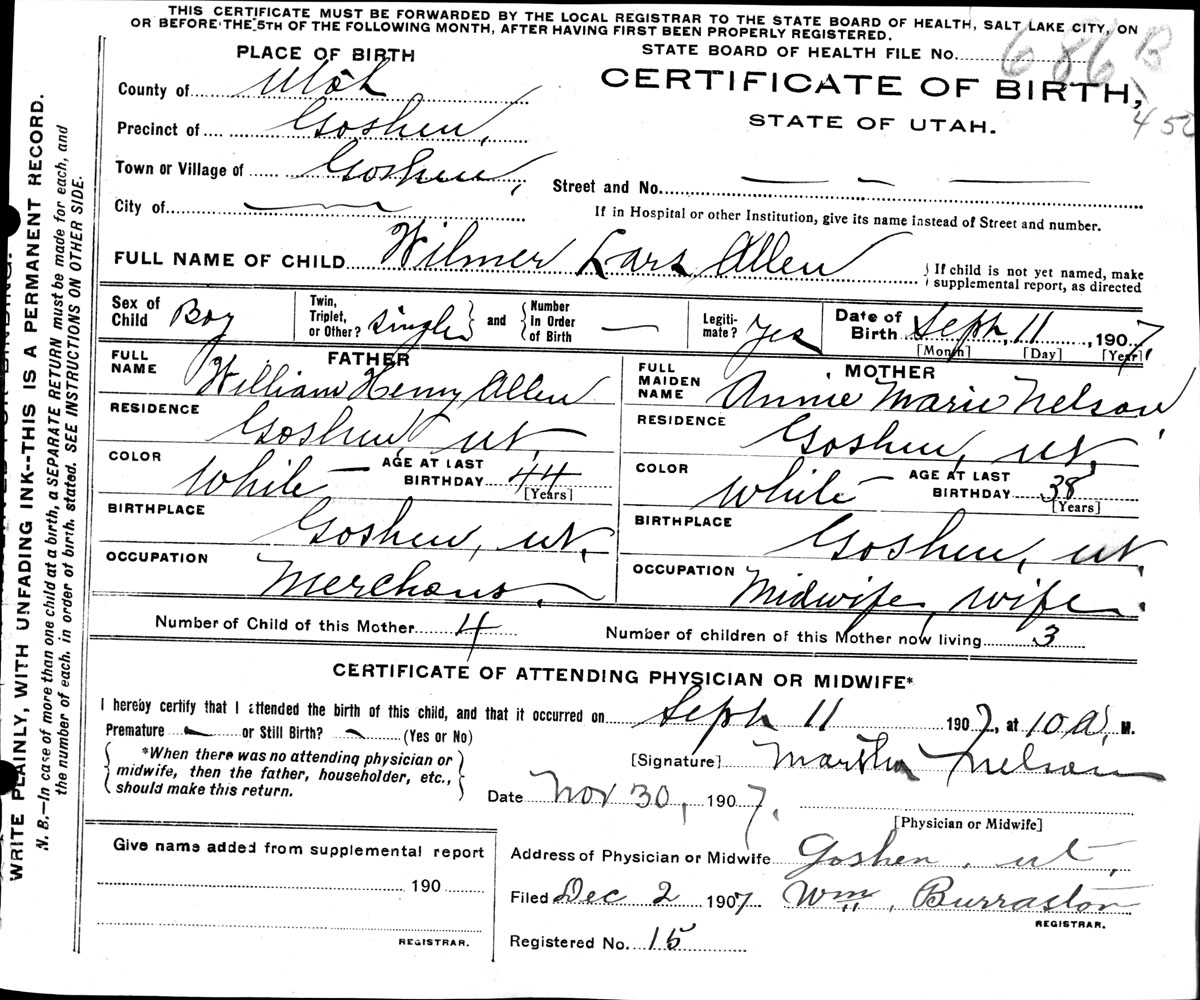 THIS CERTIFICATE MUST BE FORWARDED BY THE LOCAL REGISTRAR TO THE STATE BOARD OF HEALTH, SALT LAKE CITY, ON
OR BEFORE THE 5TH OF THE FOLLOWING MONTH, AFTER HAVING FIRST BEEN PROPERLY REGISTERED.
PLACE OF BIRTH
STATE BOARD OF HEALTH FILE No. 686 B
County of Utah
CERTIFICATE OF BIRTH,
450
Precinct of Goshen,
STATE OF UTAH.
Town or Village of Goshen,
Street and No. — — —
City of —
If in Hospital or other Institution, give its name instead of Street and number.
FULL NAME OF CHILD Wilmer Lars Allen
{If child is not yet named, make
supplemental report, as directed
Sex of Child Boy
Twin, Triplet, or Other? Single
and
Number In Order of Birth —
Legiti-mate? Yes
Date of Birth Seph, 11, 1907,
[Month] [Day] [Year]
FATHER
FULL NAME William Henry Allen
RESIDENCE Goshen, ut.
COLOR White —
AGE AT LAST BIRTHDAY 44
[Years]
BIRTHPLACE Goshen, ut.
OCCUPATION Merchant.
MOTHER
FULL MAIDEN NAME Annie Marie Nelson,
RESIDENCE Goshen, ut.
COLOR White —
AGE AT LAST BIRTHDAY 38
[Years]
BIRTHPLACE Goshen, ut.
OCCUPATION Midwife, wife.
Number of Child of this Mother 4
Number of children of this Mother now living 3
CERTIFICATE OF ATTENDING PHYSICIAN OR MIDWIFE*
I hereby certify that I attended the birth of this child, and that it occurred on Seph 11 1907, at 10 A. M.
Premature — or Still Birth? — (Yes or No)
*When there was no attending physician or
midwife, then the father, householder, etc.,
should make this return.
[Signature] Martha Nelson
Date Nov 30, 1907.
[Physician or Midwife]
Give name added from supplemental report
190
REGISTRAR.
Address of Physician or Midwife Goshen, ut,
Filed Dec 2 1907 Wm. Burraston
REGISTRAR.
Registered No. 15
WRITE PLAINLY, WITH UNFADING INK--THIS IS A PERMANENT RECORD.
N. B.—In case of more than one child at a birth, a SEPARATE RETURN must be made for each, and
the number of each, in order of birth, stated. SEE INSTRUCTIONS ON OTHER SIDE.